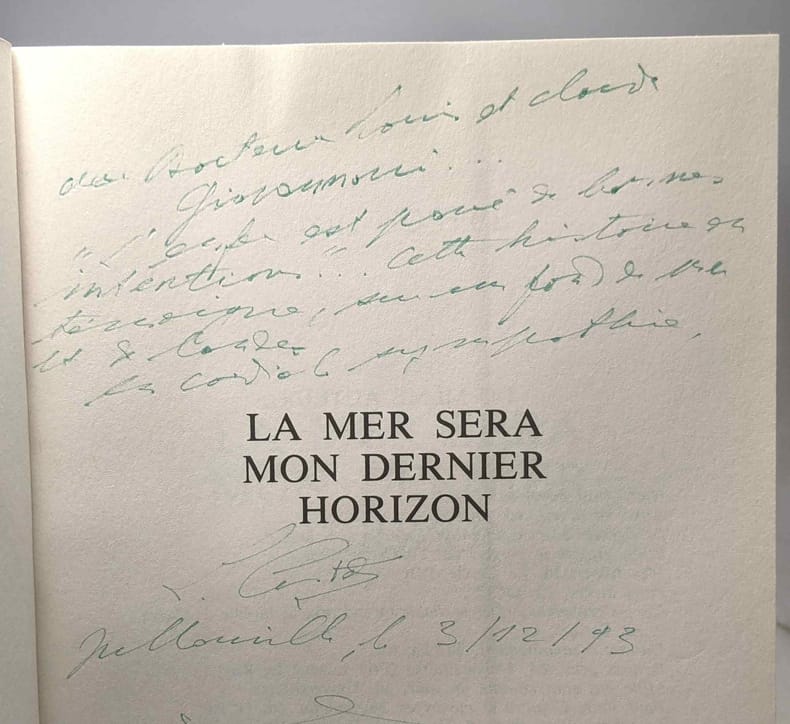 Docteur Louis et Claude
Giovannoni...
"L'enfer est pavé de bonnes
intentions"... Cette histoire en
témoigne, sur un fond de mer
et de landes
en cordiale sympathie,
LA MER SERA
MON DERNIER
HORIZON
Jullouville, le 3/12/93